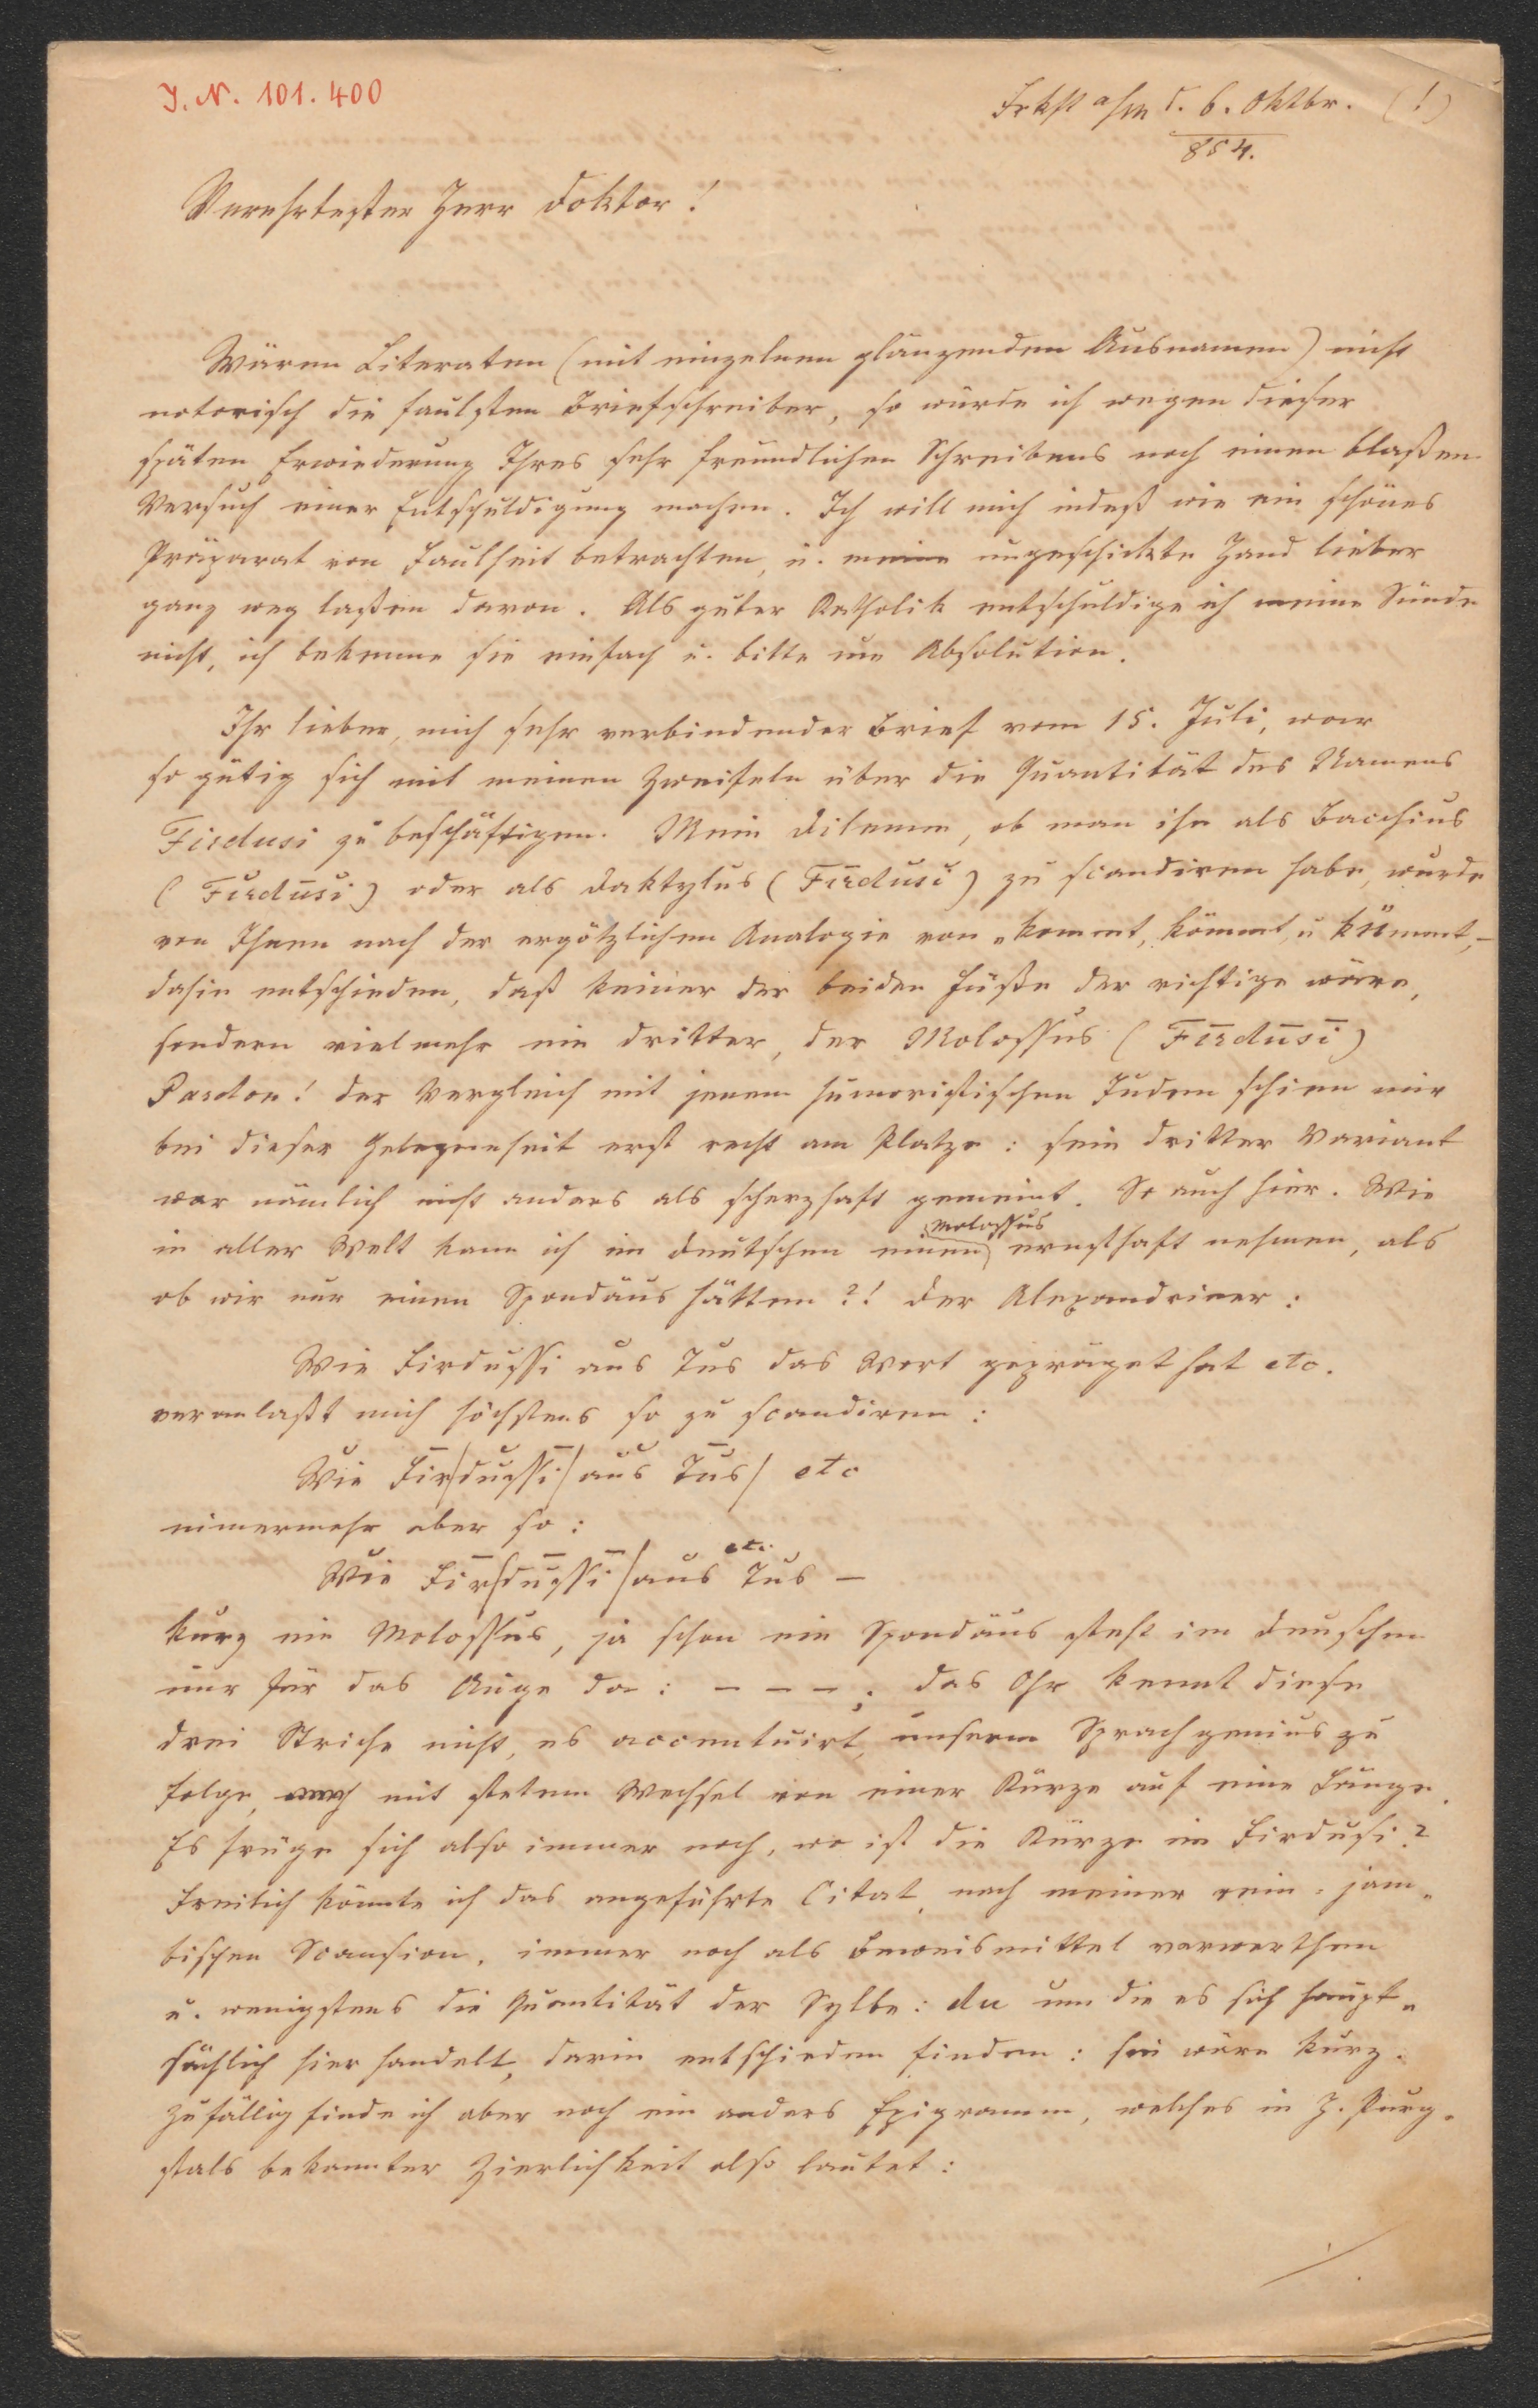 J. N. 101.400
Frkft a/m d. 6. Oktbr. (!)
854.
Verehrtester Herr Doktor!
Wären Literaten (mit einzelnen glänzenden Ausnamen) nicht
notorisch die faulsten Briefschreiber, so würde ich wegen dieser
späten Erwiederung Ihres sehr freundlichen Schreibens noch einen blaßen
Versuch einer Entschuldigung machen. Ich will mich indeß wie ein schönes
Präparat von Faulheit betrachten, u. meine ungeschickte Hand lieber
ganz weg laßen davon. Als guter Katholik entschuldige ich meine Sünde
nicht, ich bekenne sie einfach u. bitte um Absolution.
Ihr lieber, mich sehr verbindender Brief vom 15. Juli, war
so gütig sich mit meinen Zweifeln über die Quantität des Namens
Firdusi zu beschäftigen. Mein Dilemm, ob man ihn als Bacchius
(Fĭrdūsĭ) oder als Daktylus (Fīrdŭsĭ) zu scandiren habe, wurde
von Ihnen nach der ergötzlichen Analogie von „kommt, kömmt, u kümmt,–
dahin entschieden, daß keiner der beiden Füße der richtige wäre,
sondern vielmehr ein dritter, der Molossus (Fīrdūsī)
Pardon! der Vergleich mit jenem humoristischen Juden schien mir
bei dieser Gelegenheit erst recht am Platze: sein dritter Variant
war nämlich nicht anders als scherzhaft gemeint. So auch hier. Wie
in aller Welt kann ich im deutschen einen Molossus ernsthaft nehmen, als
ob wir nur einen Spondäus hätten?! Der Alexandriner:
Wie Firdussi aus Tus das Wort gepräget hat etc.
veranlaßt mich höchstens so zu scandiren:
Wĭe Fīr/dŭssī/ aŭs Tūs/ etc
nimermehr aber so:
Wĭe Fīr/dūssī/ aŭs Tus – etc.
kurz ein Molossus, ja schon ein Spondäus steht im deuschen
nur für das Auge da: – – –; das Ohr kennt diese
drei Striche nicht, es accentuirt, unserm Sprachgenius zu
folge, mit stetem Wechsel von einer Kürze auf eine Länge.
Es früge sich also immer noch, wo ist die Kürze im Firdusi?
Freilich könnte ich das angeführte Citat, nach meiner rein-jam-
bischen Scansion, immer noch als Beweismittel verwerthen
u. wenigstens die Quantität der Sylbe: du um die es sich haupt-
sächlich hier handelt, darin entschieden finden: sie wäre kurz.
Zufällig finde ich aber noch ein anders Epigramm, welches in H. Purg-
stals bekannter Zierlichkeit also lautet:
./.